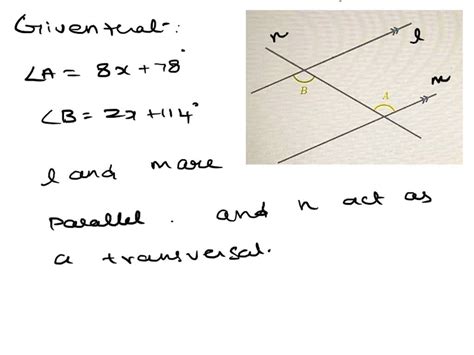 Given that:
n
l
∠A = 8x+78°
B
A
m
∠B = 2x+114°
l and m are
parallel. and n act as
a transversal.